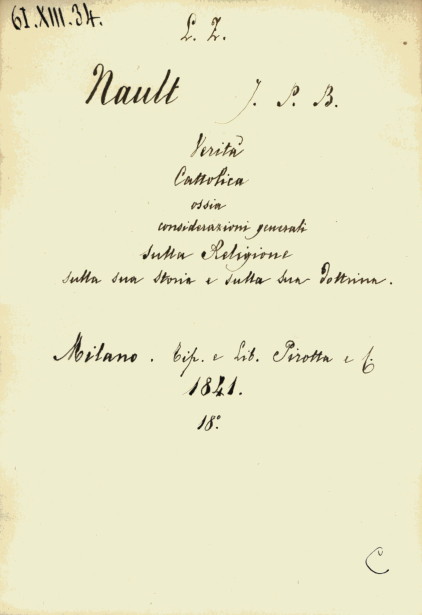 61.XIII.34.
L. Z.
Nault J. P. B.
Verità
Cattolica
ossia
considerazioni generali
sulla Religione
sulla sua storia e sulla sua dottrina.
Milano. Tip. e Lib. Pirotta e C.
1841.
18°
C